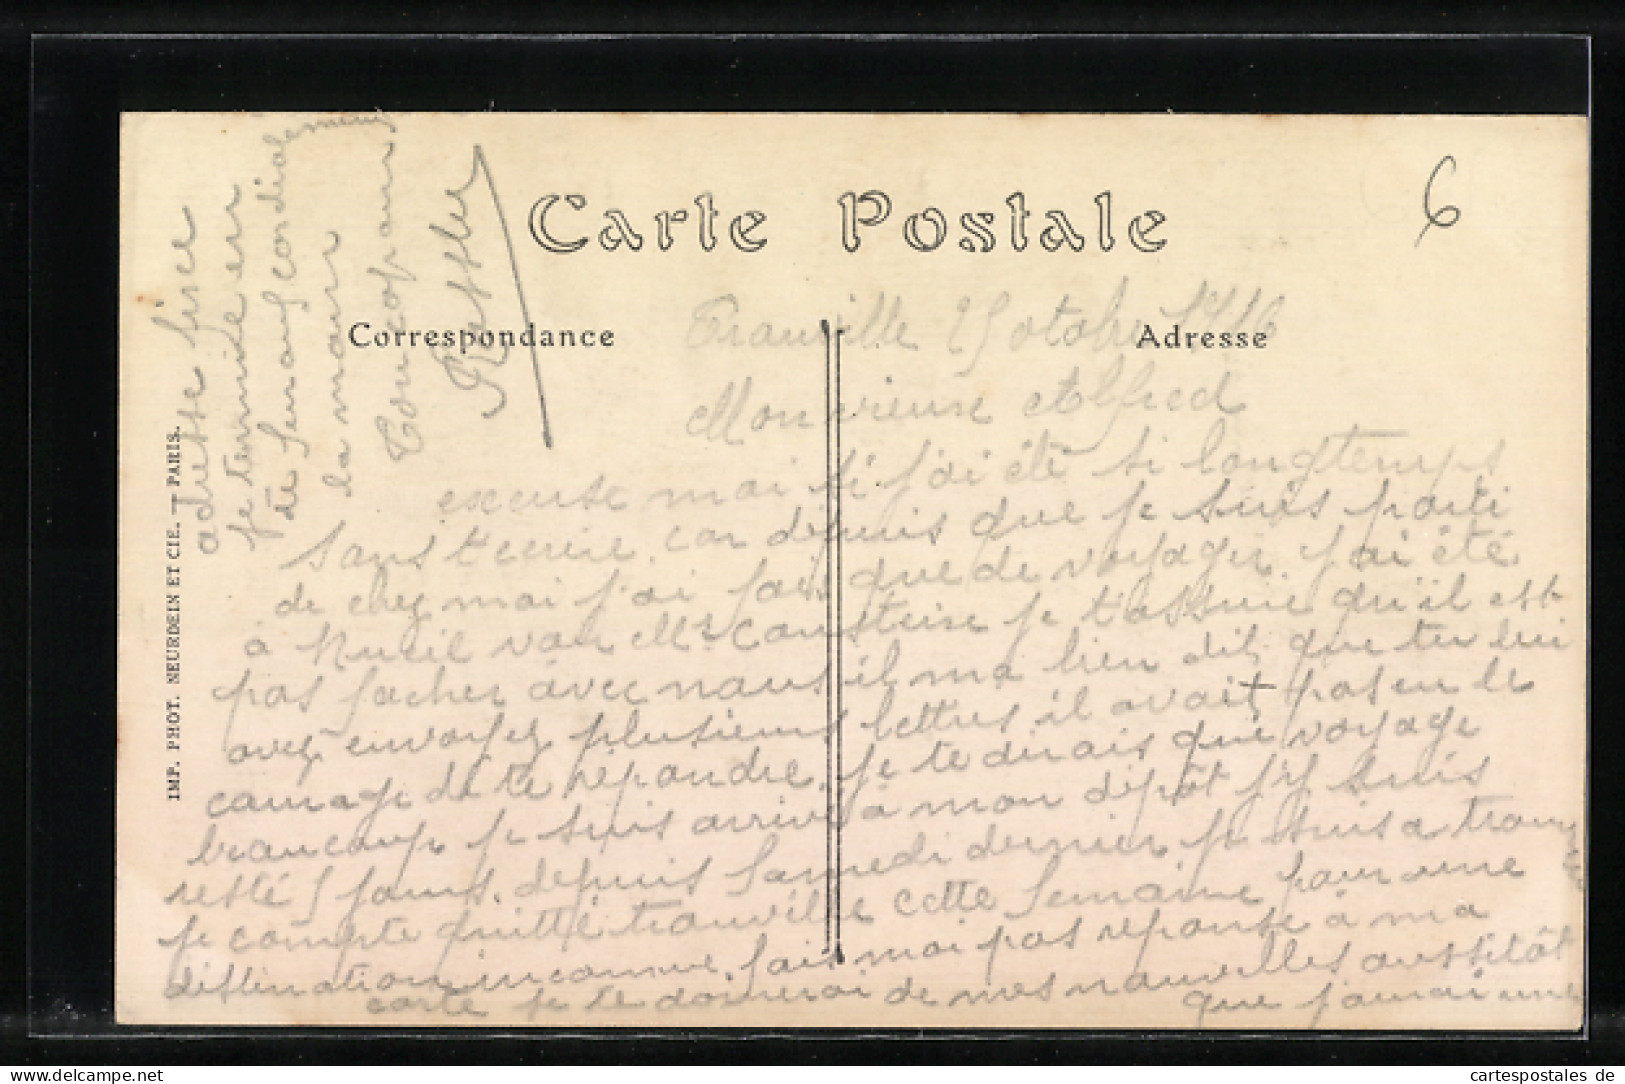 Carte Postale
6
Correspondance
Adresse
Trouville 25 octobre 1916
Mon vieux Alfred
excuse moi si j'ai été si longtemps
sans t'ecrire, car depuis que je suis parti
de chez moi j'ai fais que de voyager, j'ai été
à Rueil voir Mr je t'assure qu'il est
pas facher avec nous il ma bien dit que tu lui
avez envoyez plusieurs lettres il avait pas eu le
courage de te répondre, je te dirais que voyage
beaucoup je suis arrivé à mon dépôt j'y suis
resté 5 jours, depuis Samedi dernier je suis a trouville
je compte quitté trouville cette Semaine pour une
distination inconnue, fais moi pas réponse à ma
carte je te donnerai de mes nouvelles aussitôt
que j'aurai une
adresse fixe
je termine en
te serrant cordialement
la main
Ton copain
IMP. PHOT. NEURDEIN ET CIE. — PARIS.
Delcampe.net
cartespostales de